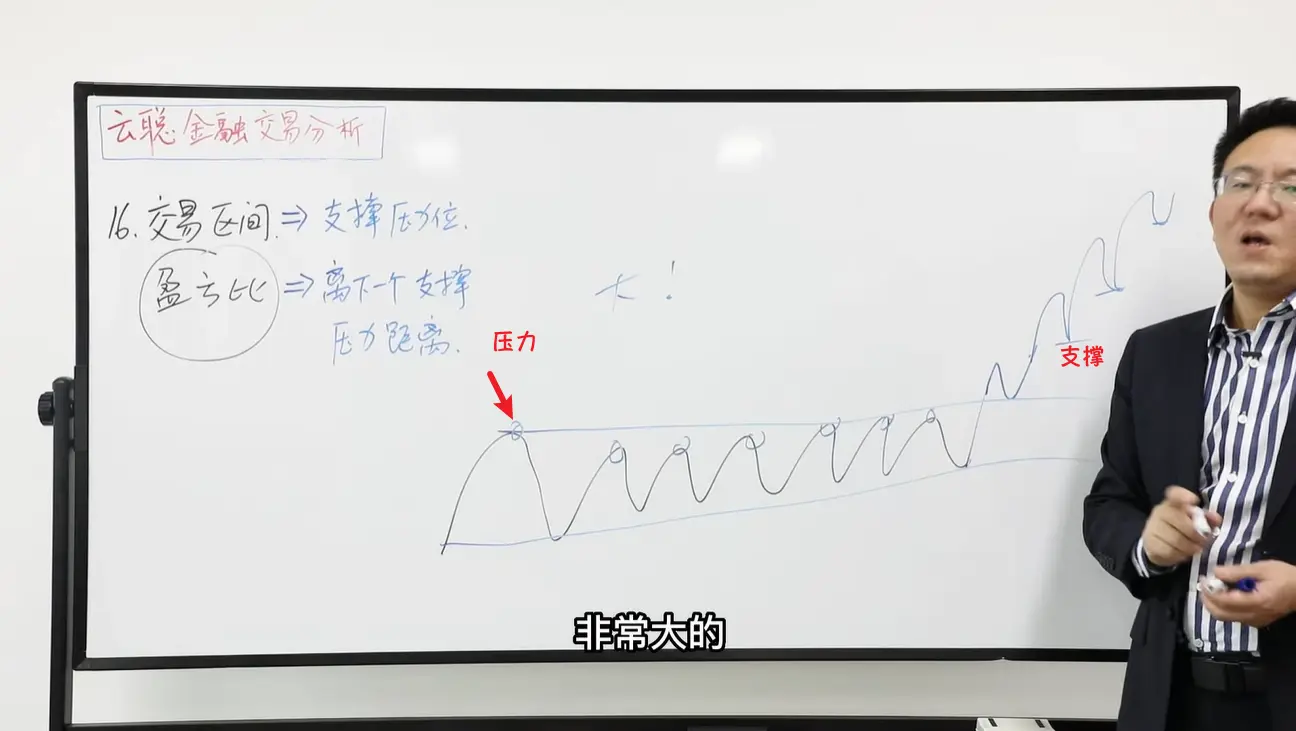 云聪金融交易分析
16.交易区间.⇒支撑压力位.
盈亏比⇒离下一个支撑
压力距离.
大！
压力
支撑
非常大的